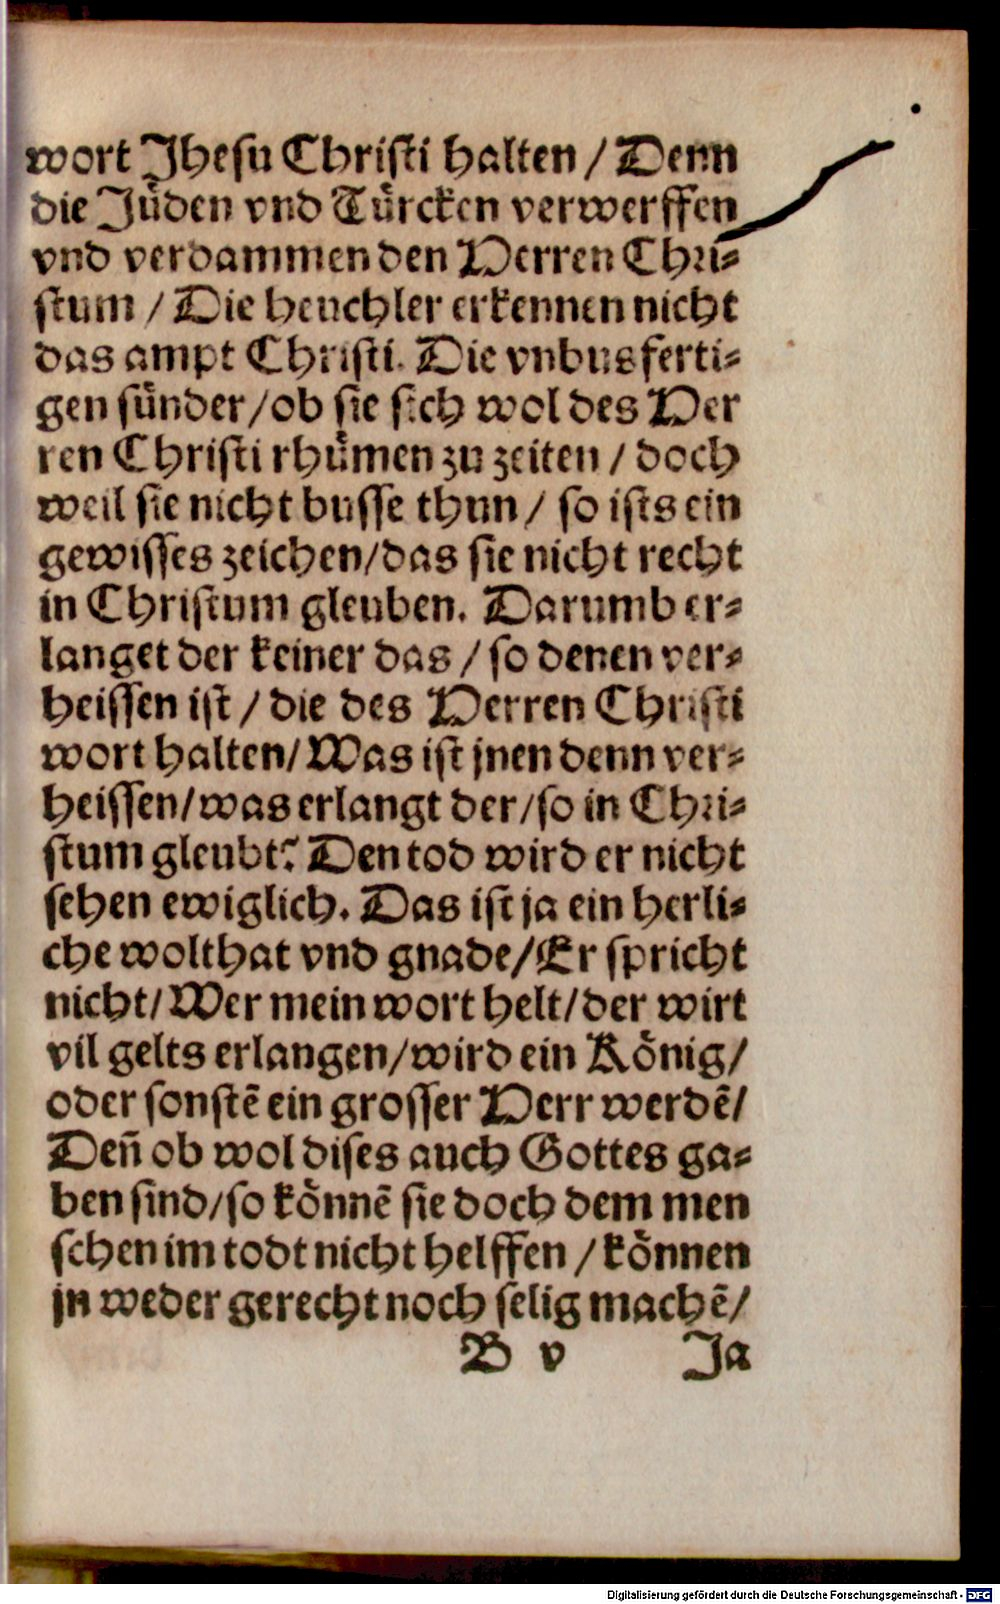 wort Jhesu Christi halten / Denn
die Jüden vnd Türcken verwerffen
vnd verdammen den Herren Chri-
stum / Die heuchler erkennen nicht
das ampt Christi. Die vnbusferti-
gen sünder/ob sie sich wol des Her
ren Christi rhümen zu zeiten / doch
weil sie nicht busse thun / so ists ein
gewisses zeichen/das sie nicht recht
in Christum gleuben. Darumb er-
langet der keiner das / so denen ver-
heissen ist / die des Herren Christi
wort halten/ Was ist jnen denn ver-
heissen/was erlangt der/so in Chri-
stum gleubt? Den tod wird er nicht
sehen ewiglich. Das ist ja ein herli-
che wolthat vnd gnade/Er spricht
nicht/ Wer mein wort helt/der wirt
vil gelts erlangen/wird ein König/
oder sonstẽ ein grosser Herr werdẽ/
Deñ ob wol dises auch Gottes ga-
ben sind/so könnẽ sie doch dem men
schen im todt nicht helffen / können
jn weder gerecht noch selig machẽ/
B v Ja
Digitalisierung gefördert durch die Deutsche Forschungsgemeinschaft - DFG